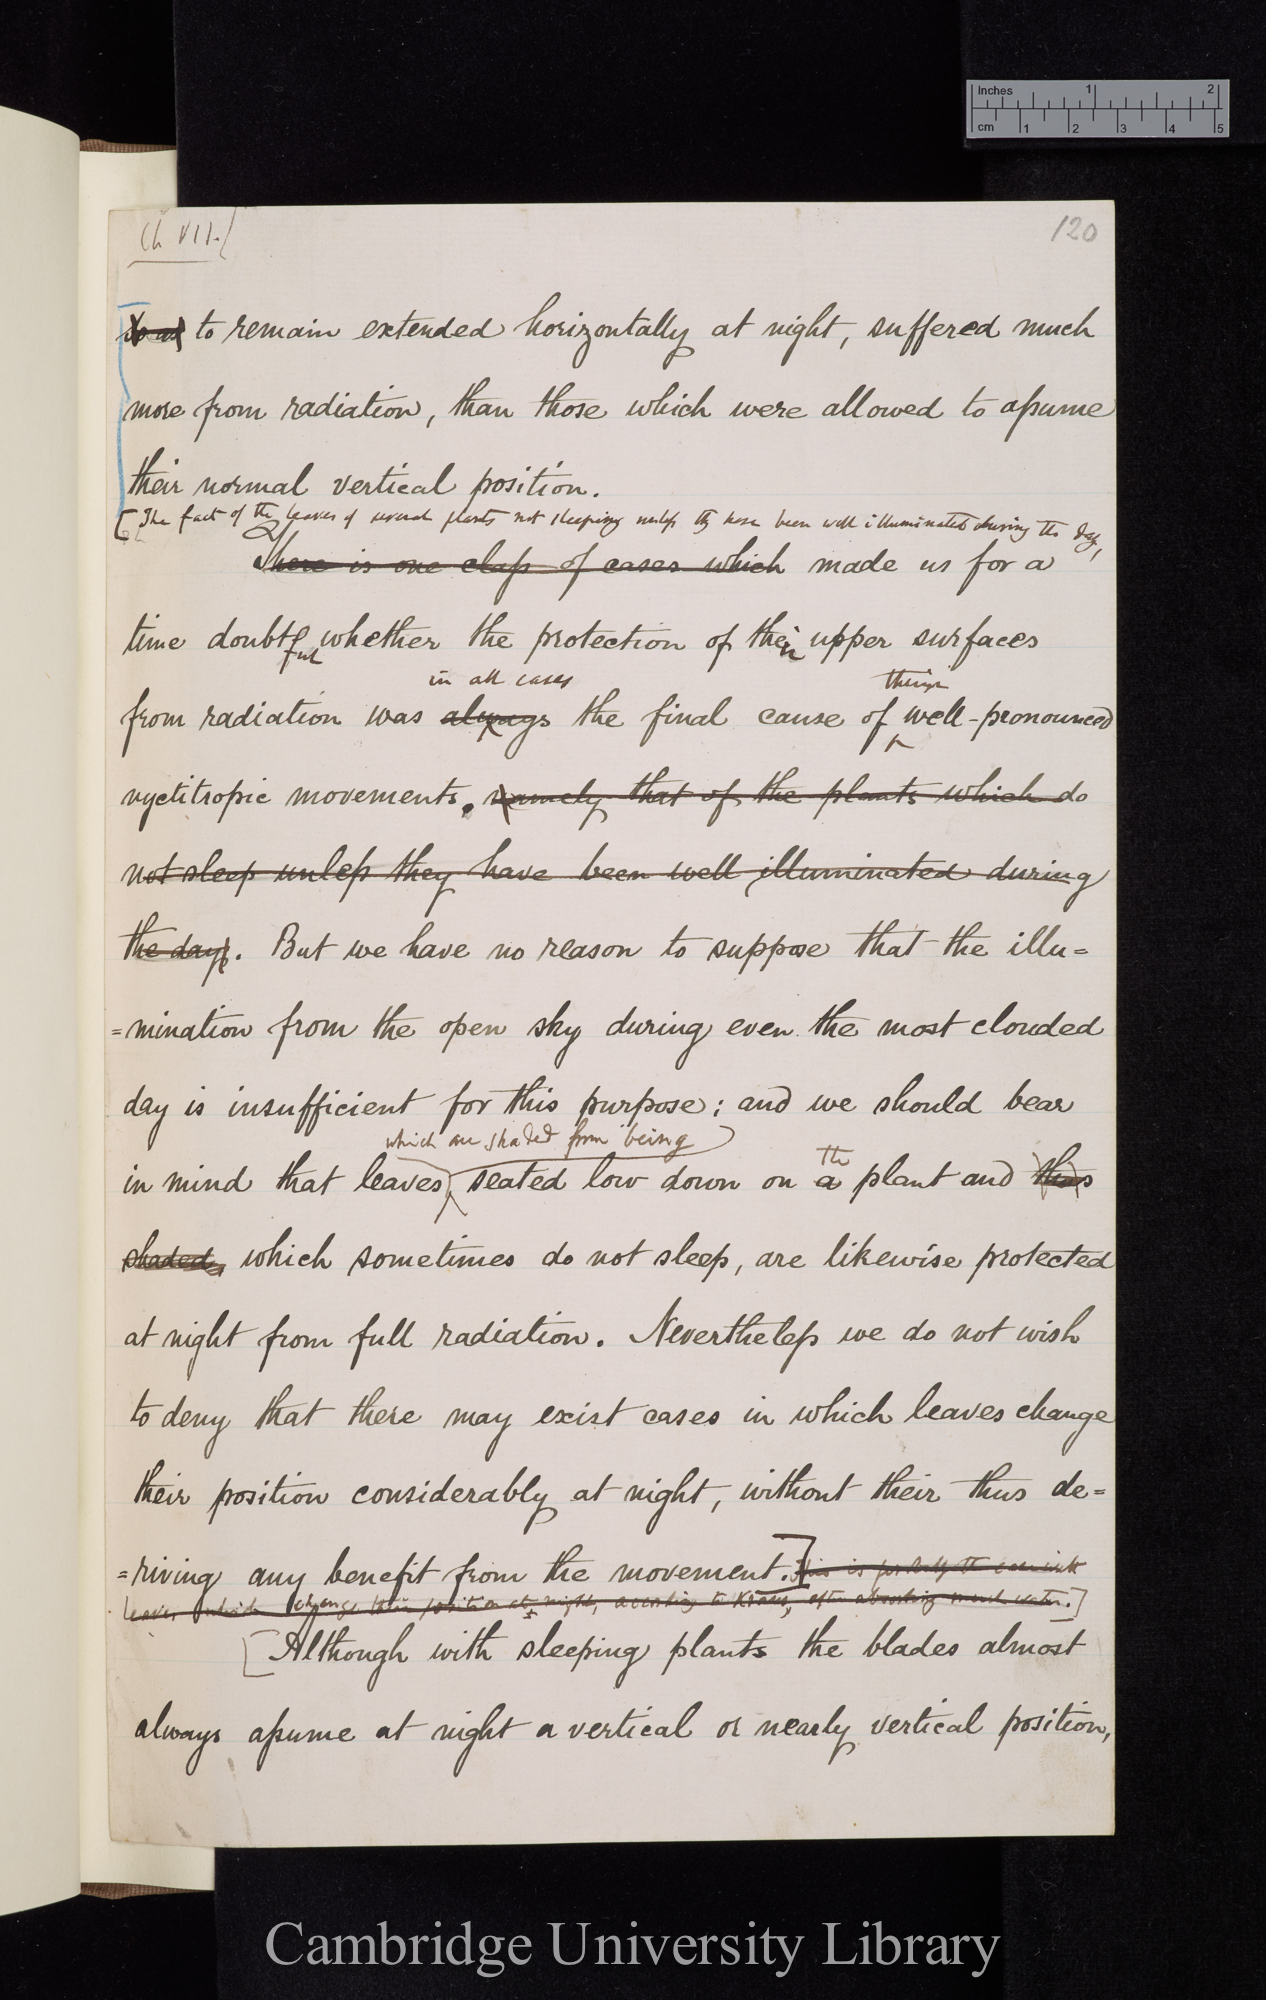 Inches 1 2
cm 1 2 3 4 5
Ch VII.
120
so as to remain extended horizontally at night, suffered much
more from radiation, than those which were allowed to assume
their normal vertical position.
[The fact of the leaves of several plants not sleeping unless they have been well illuminated during the day,
There is one class of cases which made us for a
time doubtful whether the protection of their upper surfaces
in all cases their
from radiation was always the final cause of well-pronounced
nyctitropic movements. namely that of the plants which do
not sleep unless they have been well illuminated during
the day. But we have no reason to suppose that the illu=
=mination from the open sky during even the most clouded
day is insufficient for this purpose; and we should bear
which are shaded from being
the
in mind that leaves seated low down on a plant and thus
shaded, which sometimes do not sleep, are likewise protected
at night from full radiation. Nevertheless we do not wish
to deny that there may exist cases in which leaves change
their position considerably at night, without their thus de=
=riving any benefit from the movement.] This is probably the case with
leaves which change their position at night, according to Kraus, after absorbing much water.]
[Although with sleeping plants the blades almost
always assume at night a vertical or nearly vertical position,
Cambridge University Library